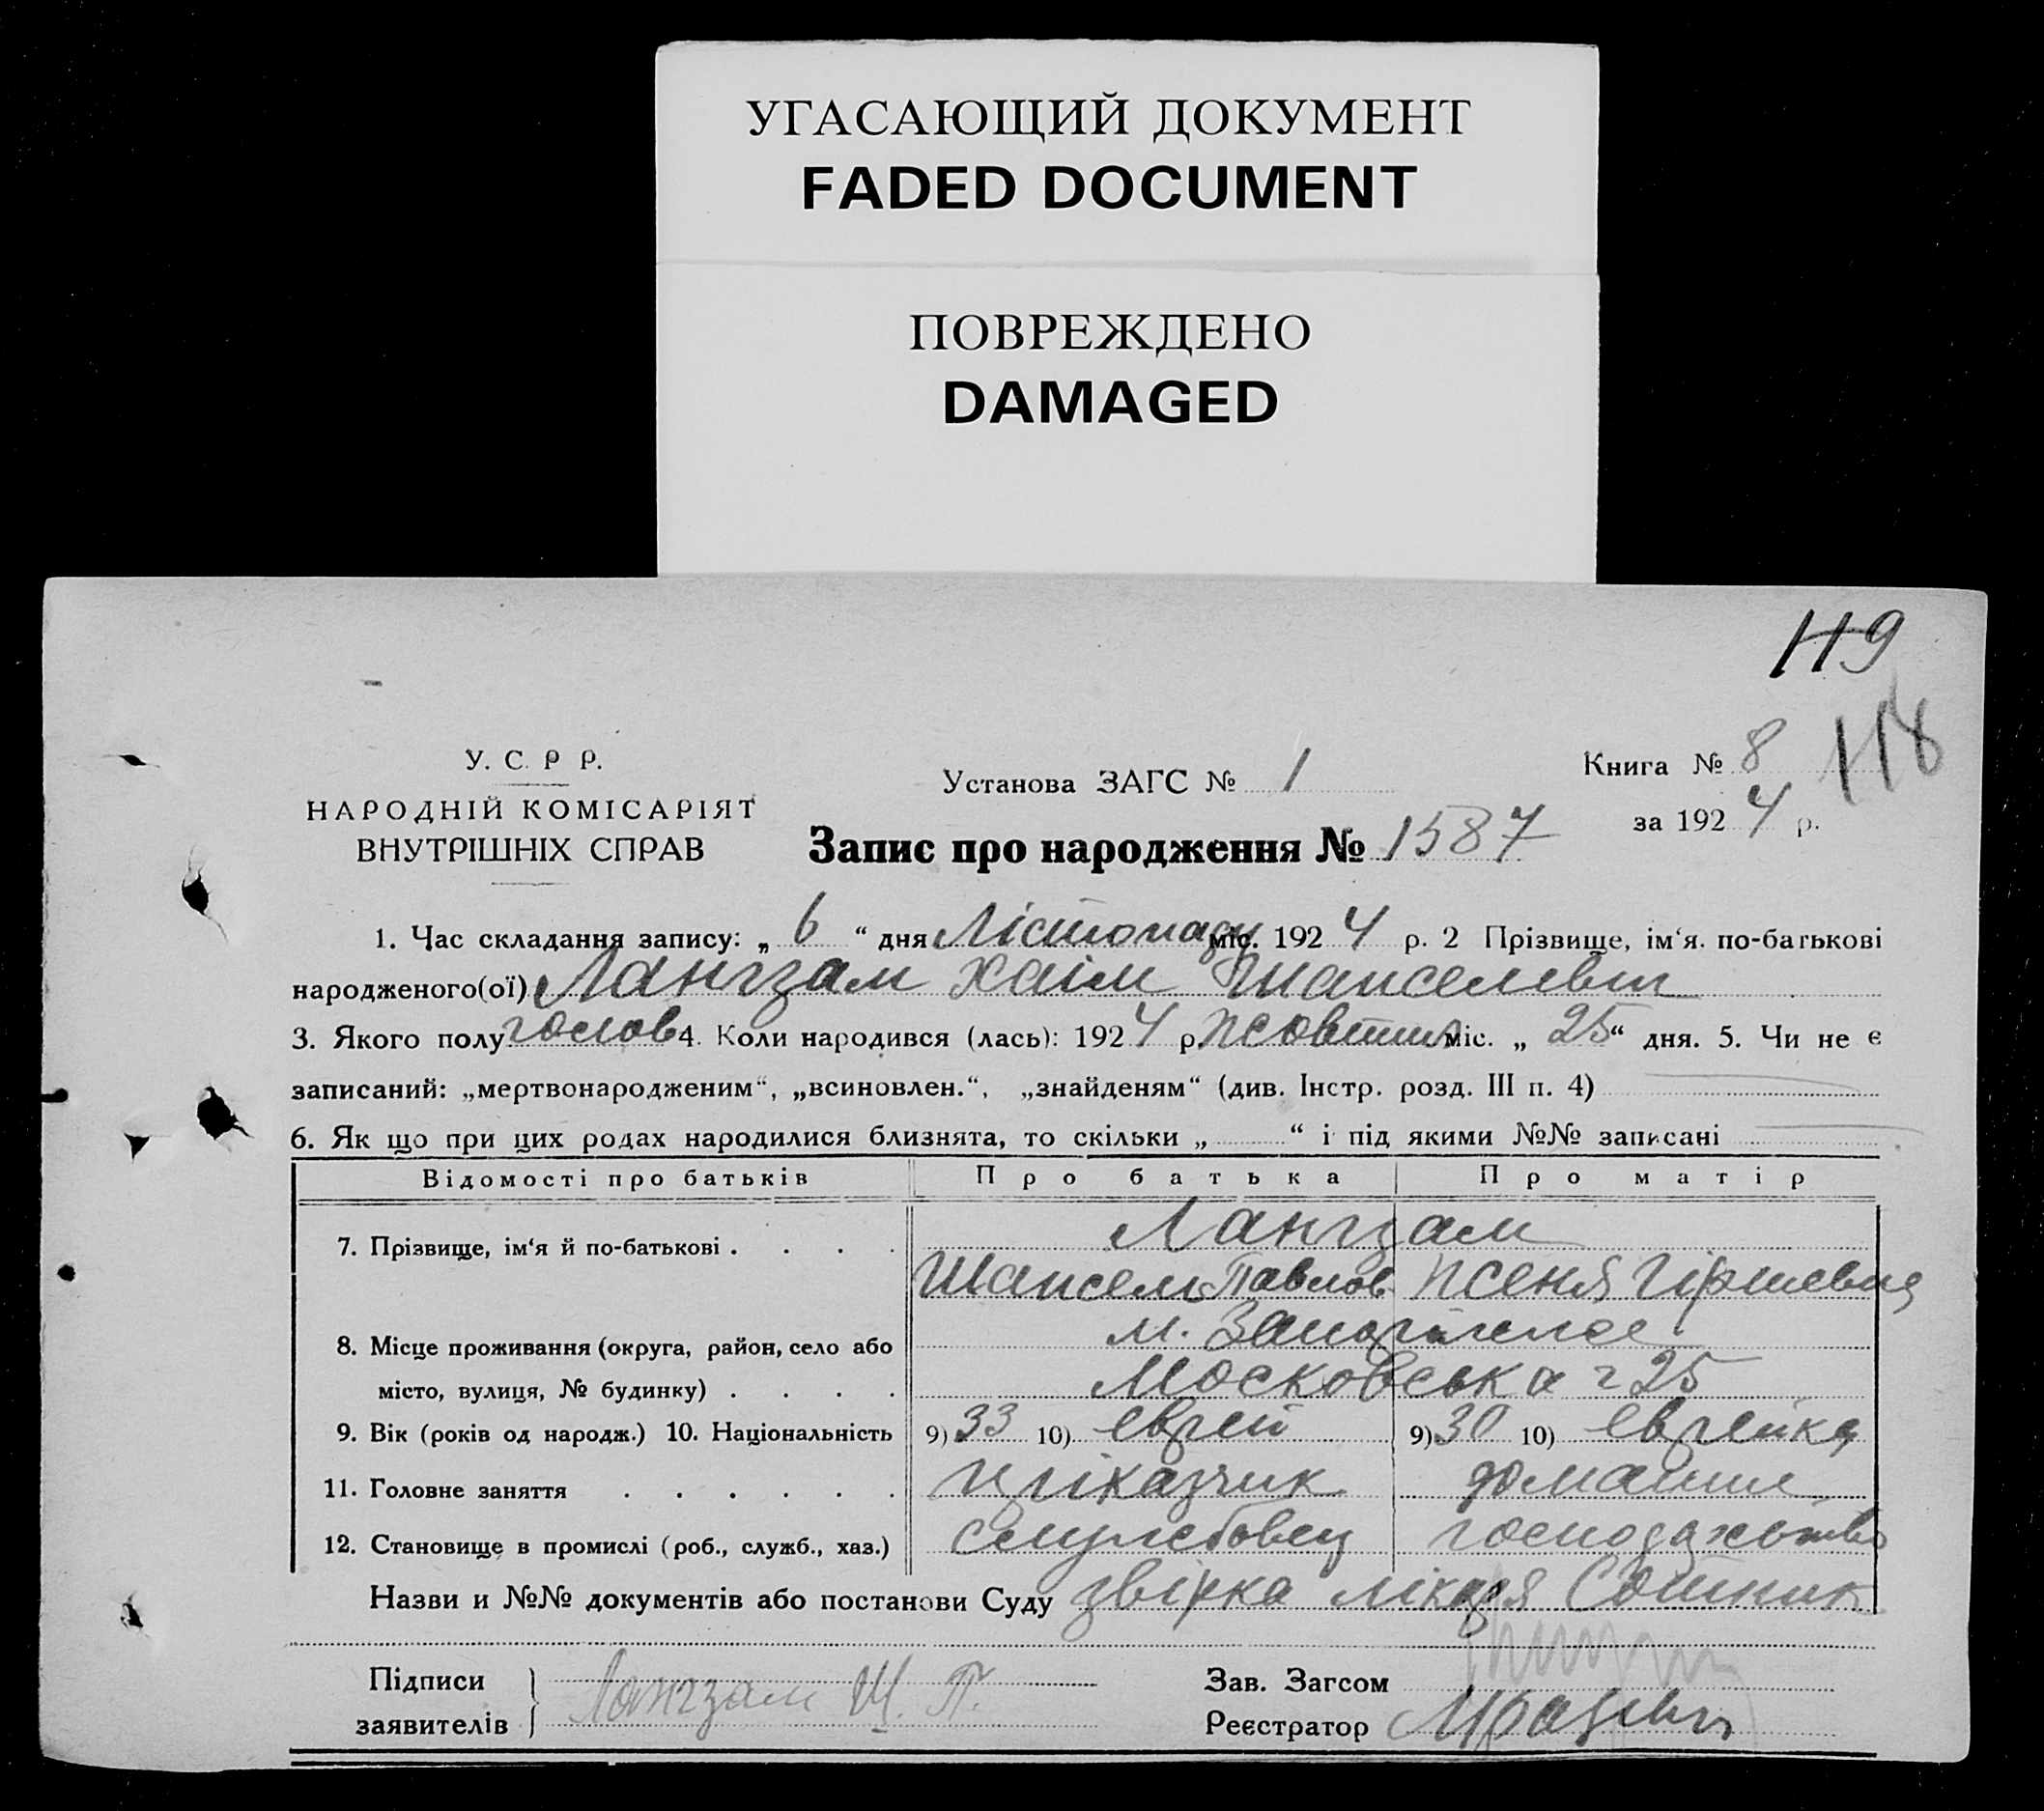 УГАСАЮЩИЙ ДОКУМЕНТ
FADED DOCUMENT
ПОВРЕЖДЕНО
DAMAGED
119
118
У. С. Р Р.
НАРОДНІЙ КОМІСАРІЯТ
ВНУТРІШНІХ СПРАВ
Установа ЗАГС № 1
Книга № 8
за 1924 р.
Запис про народження № 1587
1. Час складання запису: „ 6 “ дня Лістопаду міс. 1924 р. 2 Прізвище, ім‘я. по-батькові
народженого(ої) Лангзам Хаім Шапселевич
3. Якого полу голов 4. Коли народився (лась): 1924 р. жовтня міс. „ 25 “ дня. 5. Чи не є
записаний: „мертвонародженим“, „всиновлен.“, „знайденям“ (див. Інстр. розд. III п. 4)
6. Як що при цих родах народилися близнята, то скільки „ “ і під якими №№ записані
Відомості про батьків Про батька Про матір
7. Прізвище, ім‘я й по-батькові . . . . Лангзам
Шапсель Павлов Женя Гіршевна
8. Місце проживання (округа, район, село або м. Запоріжжє
місто, вулиця, № будинку) . . . . Московська ч 25
9. Вік (років од народж.) 10. Національність 9) 33 10) еврей 9) 30 10) еврейка
11. Головне заняття . . . . . . приказчик домашнє
12. Становище в промислі (роб., служб., хаз.) службовець господарство
Назви и №№ документів або постанови Суду звірка лікаря Сотник
Підписи
заявителів } Лангзам Ш. П.
Зав. Загсом
Реєстратор